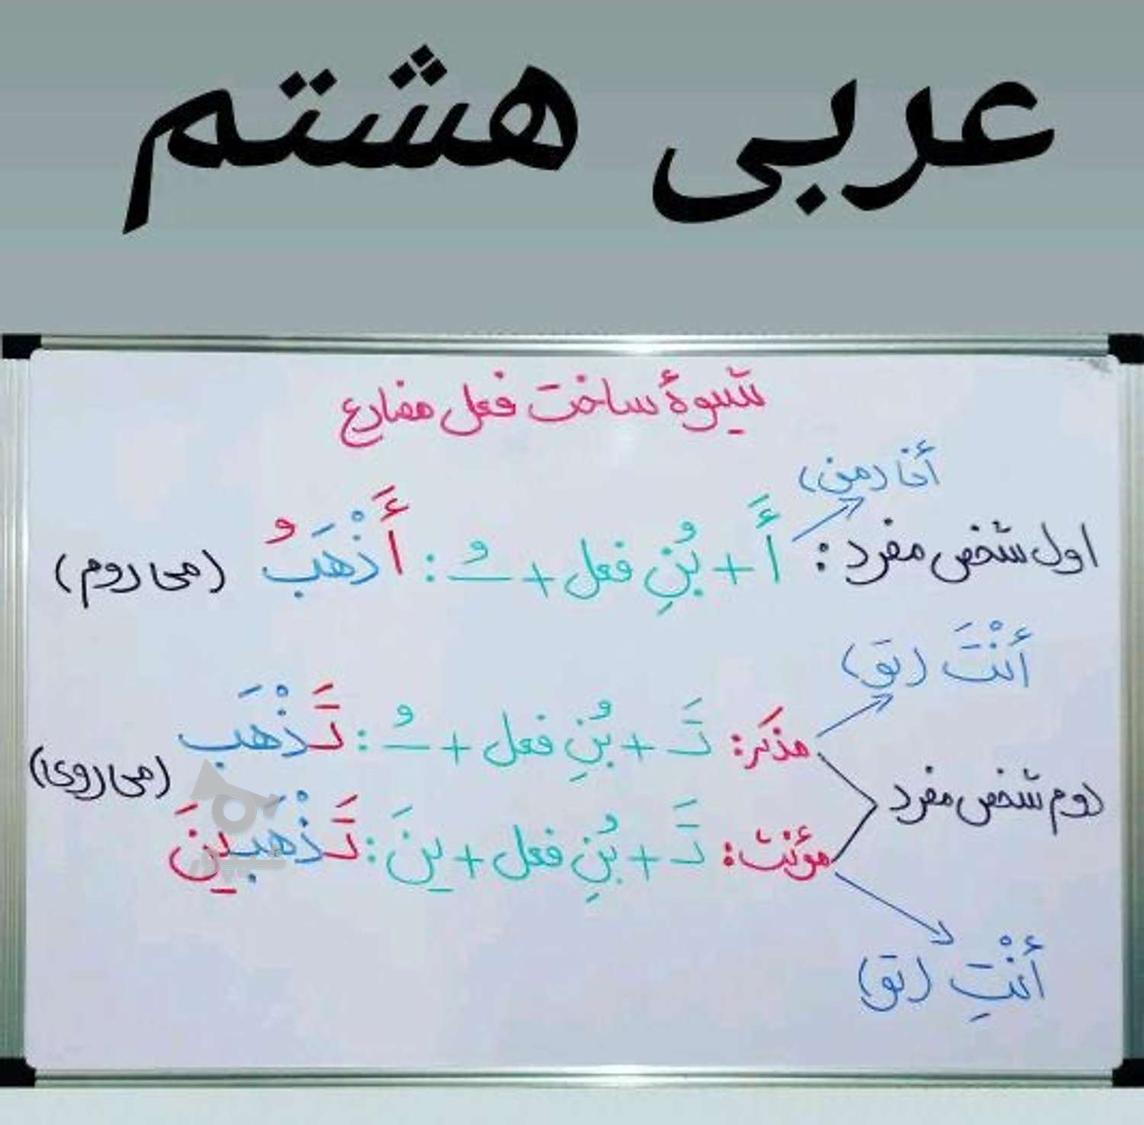 عربی هشتم
شیوهٔ ساخت فعل مضارع
أنا (من)
اول شخص مفرد: أَ + بُنِ فعل + ـُ : أَذْهَبُ (می روم)
أَنْتَ (تو)
مذکر: تَـ + بُنِ فعل + ـُ : تَذْهَب
دوم شخص مفرد (می روی)
مؤنث: تَـ + بُنِ فعل + ینَ : تَذْهَبینَ
أَنْتِ (تو)